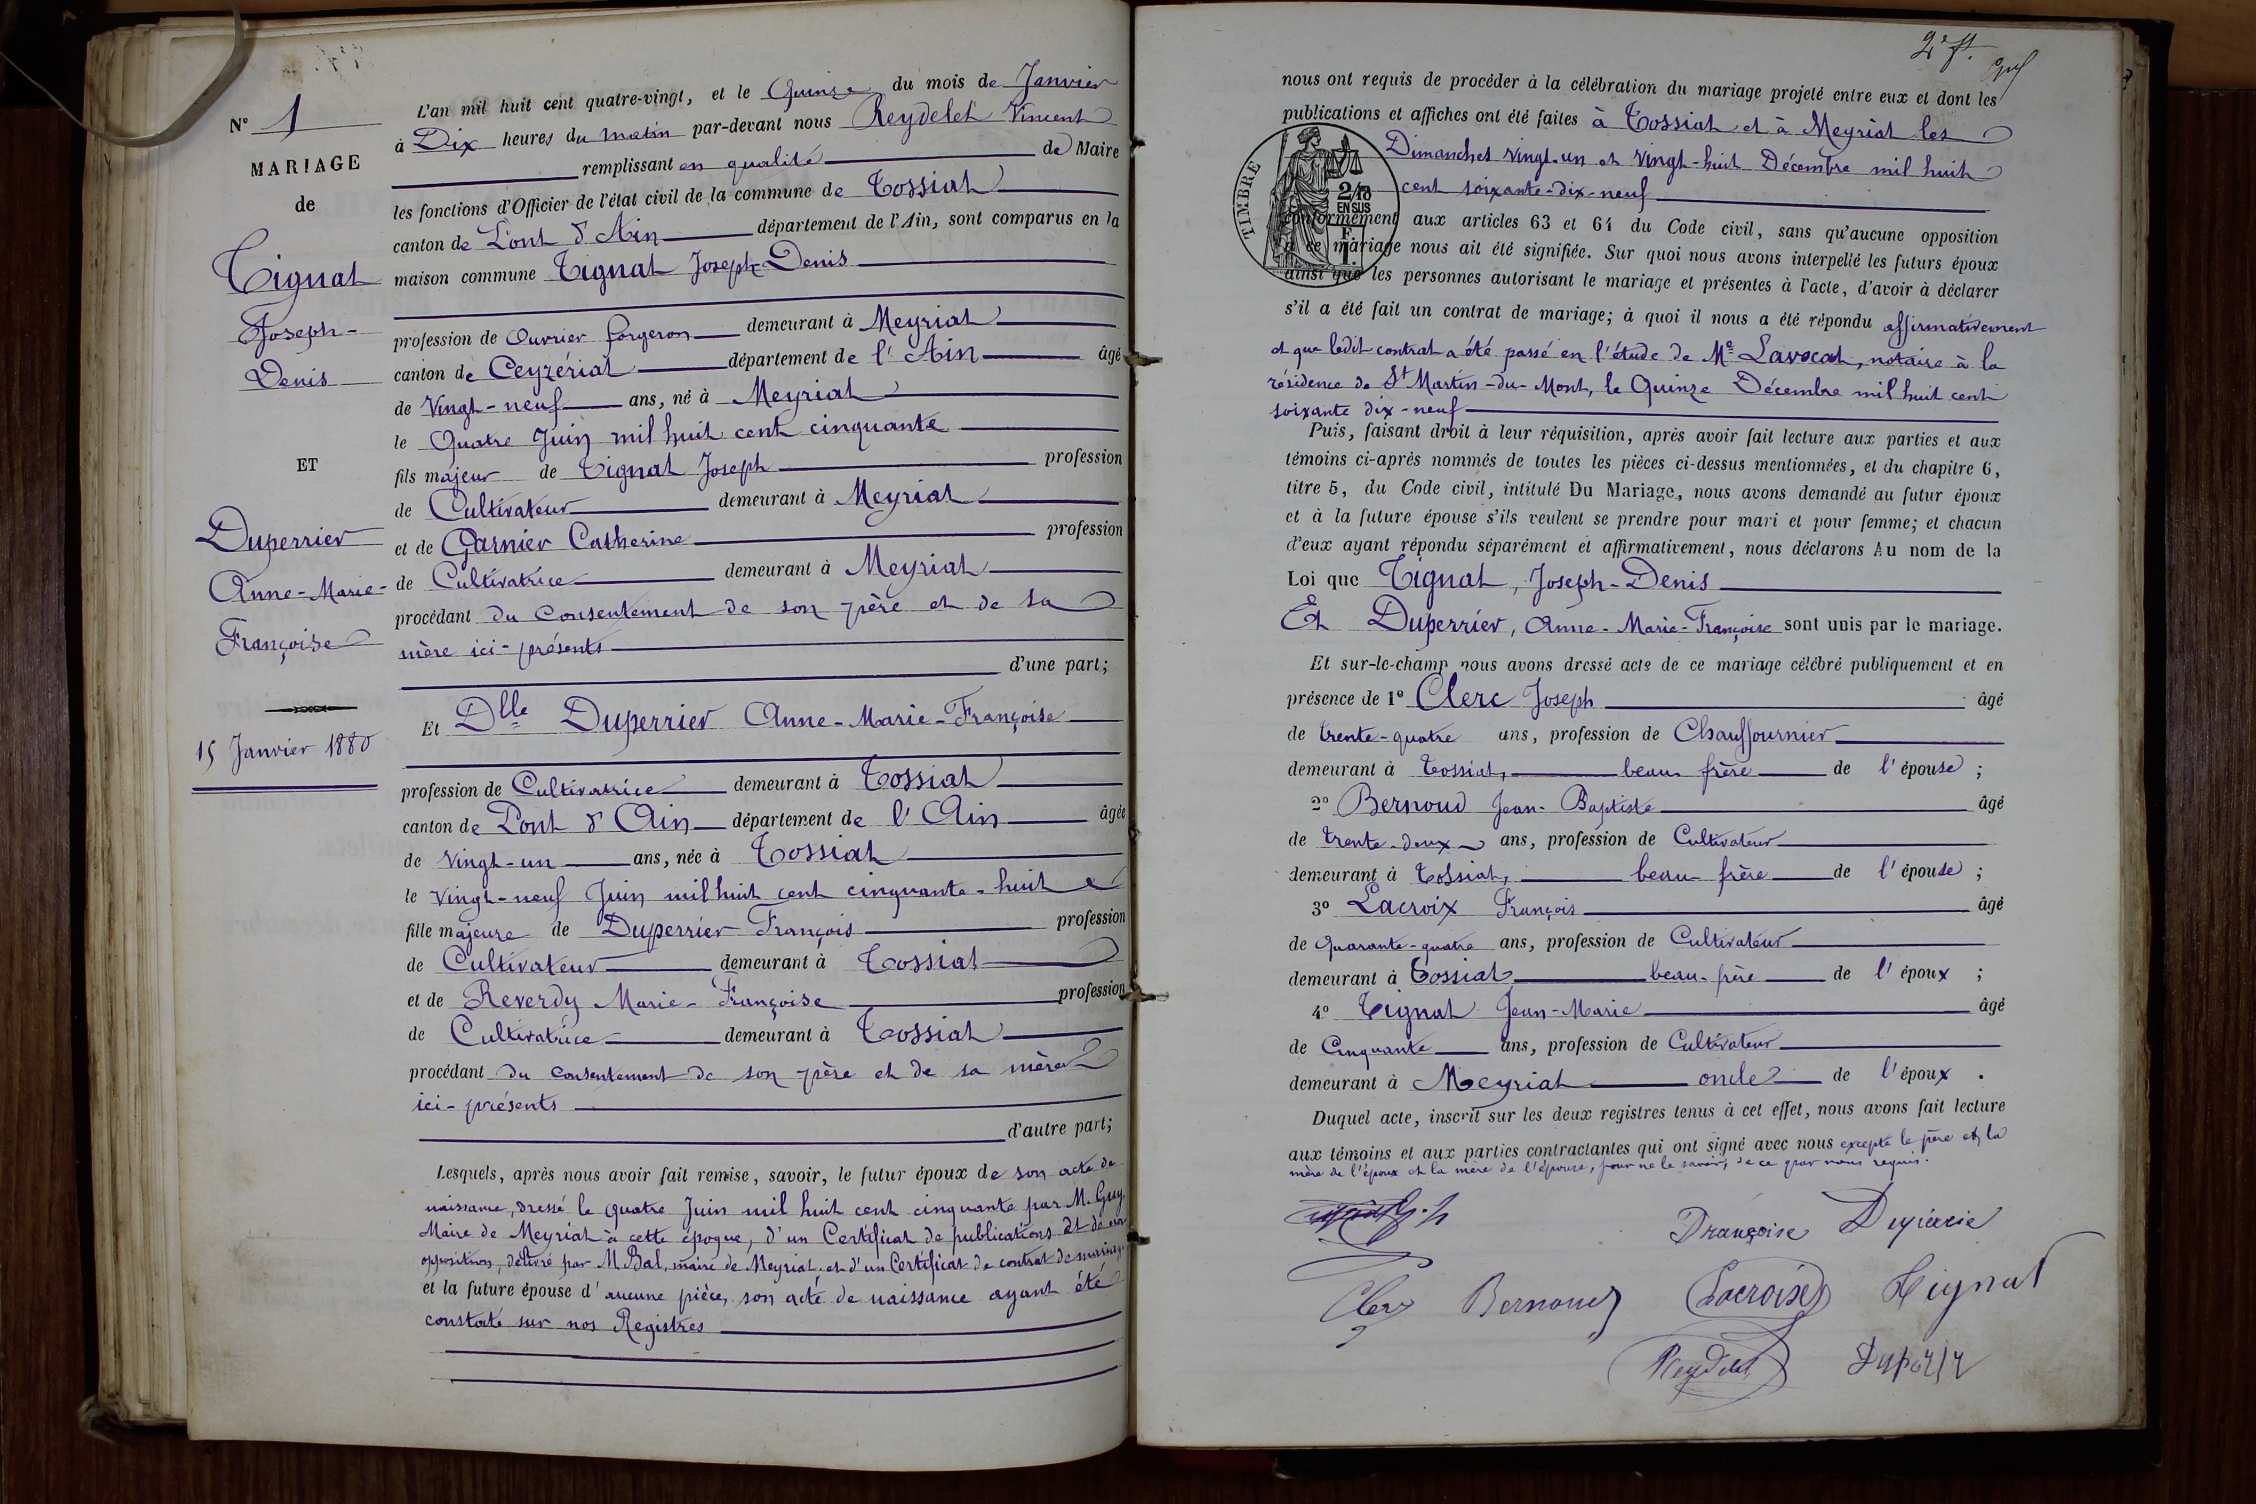 N° 1
MARIAGE
de
Tignat
Joseph-
Denis
ET
Duperrier
Anne-Marie-
Françoise
15 Janvier 1880
L'an mil huit cent quatre-vingt, et le Quinze du mois de Janvier
à Dix heures du matin par-devant nous Reydelet Vincent
remplissant en qualité de Maire
les fonctions d'Officier de l'état civil de la commune de Tossiat
canton de Pont d'Ain département de l'Ain, sont comparus en la
maison commune Tignat Joseph-Denis
profession de Ouvrier forgeron demeurant à Meyriat
canton de Ceyzériat département de l'Ain âgé
de Vingt-neuf ans, né à Meyriat
le Quatre Juin mil huit cent cinquante
fils majeur de Tignat Joseph profession
de Cultivateur demeurant à Meyriat
et de Garnier Catherine profession
de Cultivatrice demeurant à Meyriat
procédant du Consentement de son père et de sa
mère ici-présents
d'une part;
Et Dlle Duperrier Anne-Marie-Françoise
profession de Cultivatrice demeurant à Tossiat
canton de Pont d'Ain département de l'Ain âgée
de Vingt-un ans, née à Tossiat
le Vingt-neuf Juin mil huit cent cinquante-huit
fille majeure de Duperrier François profession
de Cultivateur demeurant à Tossiat
et de Reverdy Marie-Françoise profession
de Cultivatrice demeurant à Tossiat
procédant du consentement de son père et de sa mère
ici-présents
d'autre part;
Lesquels, après nous avoir fait remise, savoir, le futur époux de son acte de
naissance, dressé le quatre Juin mil huit cent cinquante par M. Guy
Maire de Meyriat à cette époque, d'un Certificat de publications et de non
opposition, délivré par M Bal, maire de Meyriat, et d'un Certificat de contrat de mariage
et la future épouse d'aucune pièce, son acte de naissance ayant été
constaté sur nos Registres
2e ft.
nous ont requis de procéder à la célébration du mariage projeté entre eux et dont les
publications et affiches ont été faites à Tossiat et à Meyriat les
Dimanches vingt-un et vingt-huit Décembre mil huit
cent soixante-dix-neuf
TIMBRE
2/10
EN SUS
conformément aux articles 63 et 64 du Code civil, sans qu'aucune opposition
à ce mariage nous ait été signifiée. Sur quoi nous avons interpellé les futurs époux
ainsi que les personnes autorisant le mariage et présentes à l'acte, d'avoir à déclarer
s'il a été fait un contrat de mariage; à quoi il nous a été répondu affirmativement
et que ledit contrat a été passé en l'étude de Me Lavocat, notaire à la
résidence de St Martin-du-Mont, le Quinze Décembre mil huit cent
soixante dix-neuf
Puis, faisant droit à leur réquisition, après avoir fait lecture aux parties et aux
témoins ci-après nommés de toutes les pièces ci-dessus mentionnées, et du chapitre 6,
titre 5, du Code civil, intitulé Du Mariage, nous avons demandé au futur époux
et à la future épouse s'ils veulent se prendre pour mari et pour femme; et chacun
d'eux ayant répondu séparément et affirmativement, nous déclarons Au nom de la
Loi que Tignat, Joseph-Denis
Et Duperrier, Anne-Marie-Françoise sont unis par le mariage.
Et sur-le-champ nous avons dressé acte de ce mariage célébré publiquement et en
présence de 1° Clerc Joseph âgé
de trente-quatre ans, profession de Chauffournier
demeurant à Tossiat, beau frère de l'épouse ;
2° Bernoud Jean-Baptiste âgé
de trente-deux ans, profession de Cultivateur
demeurant à Tossiat, beau-frère de l'épouse ;
3° Lacroix François âgé
de quarante-quatre ans, profession de Cultivateur
demeurant à Tossiat beau-frère de l'époux ;
4° Tignat Jean-Marie âgé
de Cinquante ans, profession de Cultivateur
demeurant à Meyriat oncle de l'époux .
Duquel acte, inscrit sur les deux registres tenus à cet effet, nous avons fait lecture
aux témoins et aux parties contractantes qui ont signé avec nous excepté le père et la
mère de l'époux et la mère de l'épouse, pour ne le savoir, de ce par nous requis.
Clerc Bernoud Lacroix Tignat
Reydelet